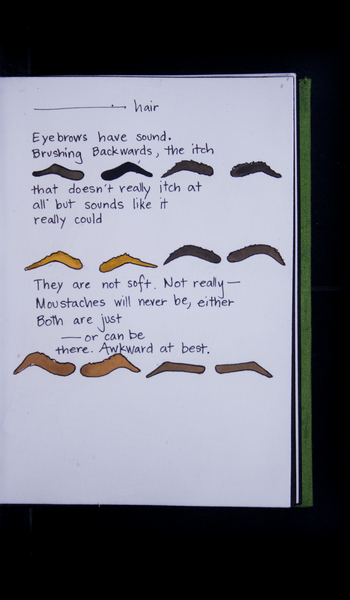 hair
Eyebrows have sound.
Brushing Backwards, the itch
that doesn't really itch at
all but sounds like it
really could
They are not soft. Not really—
Moustaches will never be, either
Both are just
— or can be
there. Awkward at best.